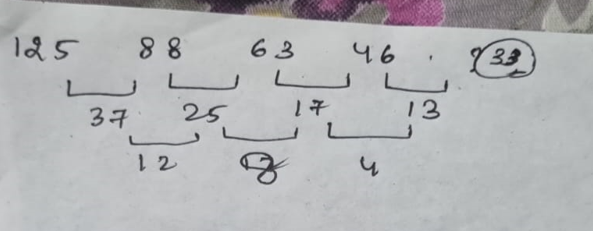 125 88 63 46 . ? 33
37 25 17 13
12 8 4